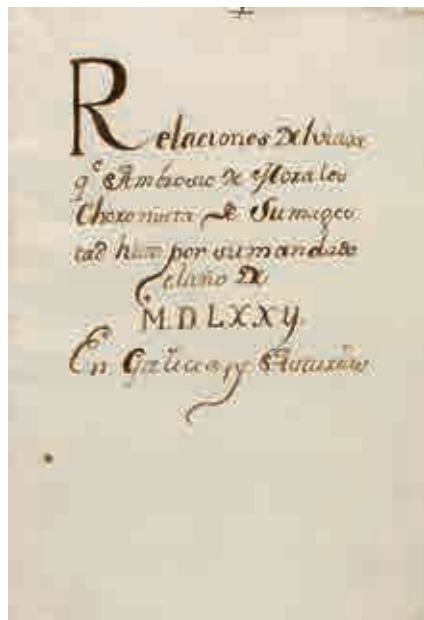 Relaciones Del viage
q^e Ambrosio de Morales
Choronista de Su mages
tad hizo por su mandado
el año De
M.D.LXXIJ.
En Galicia, y Asturias